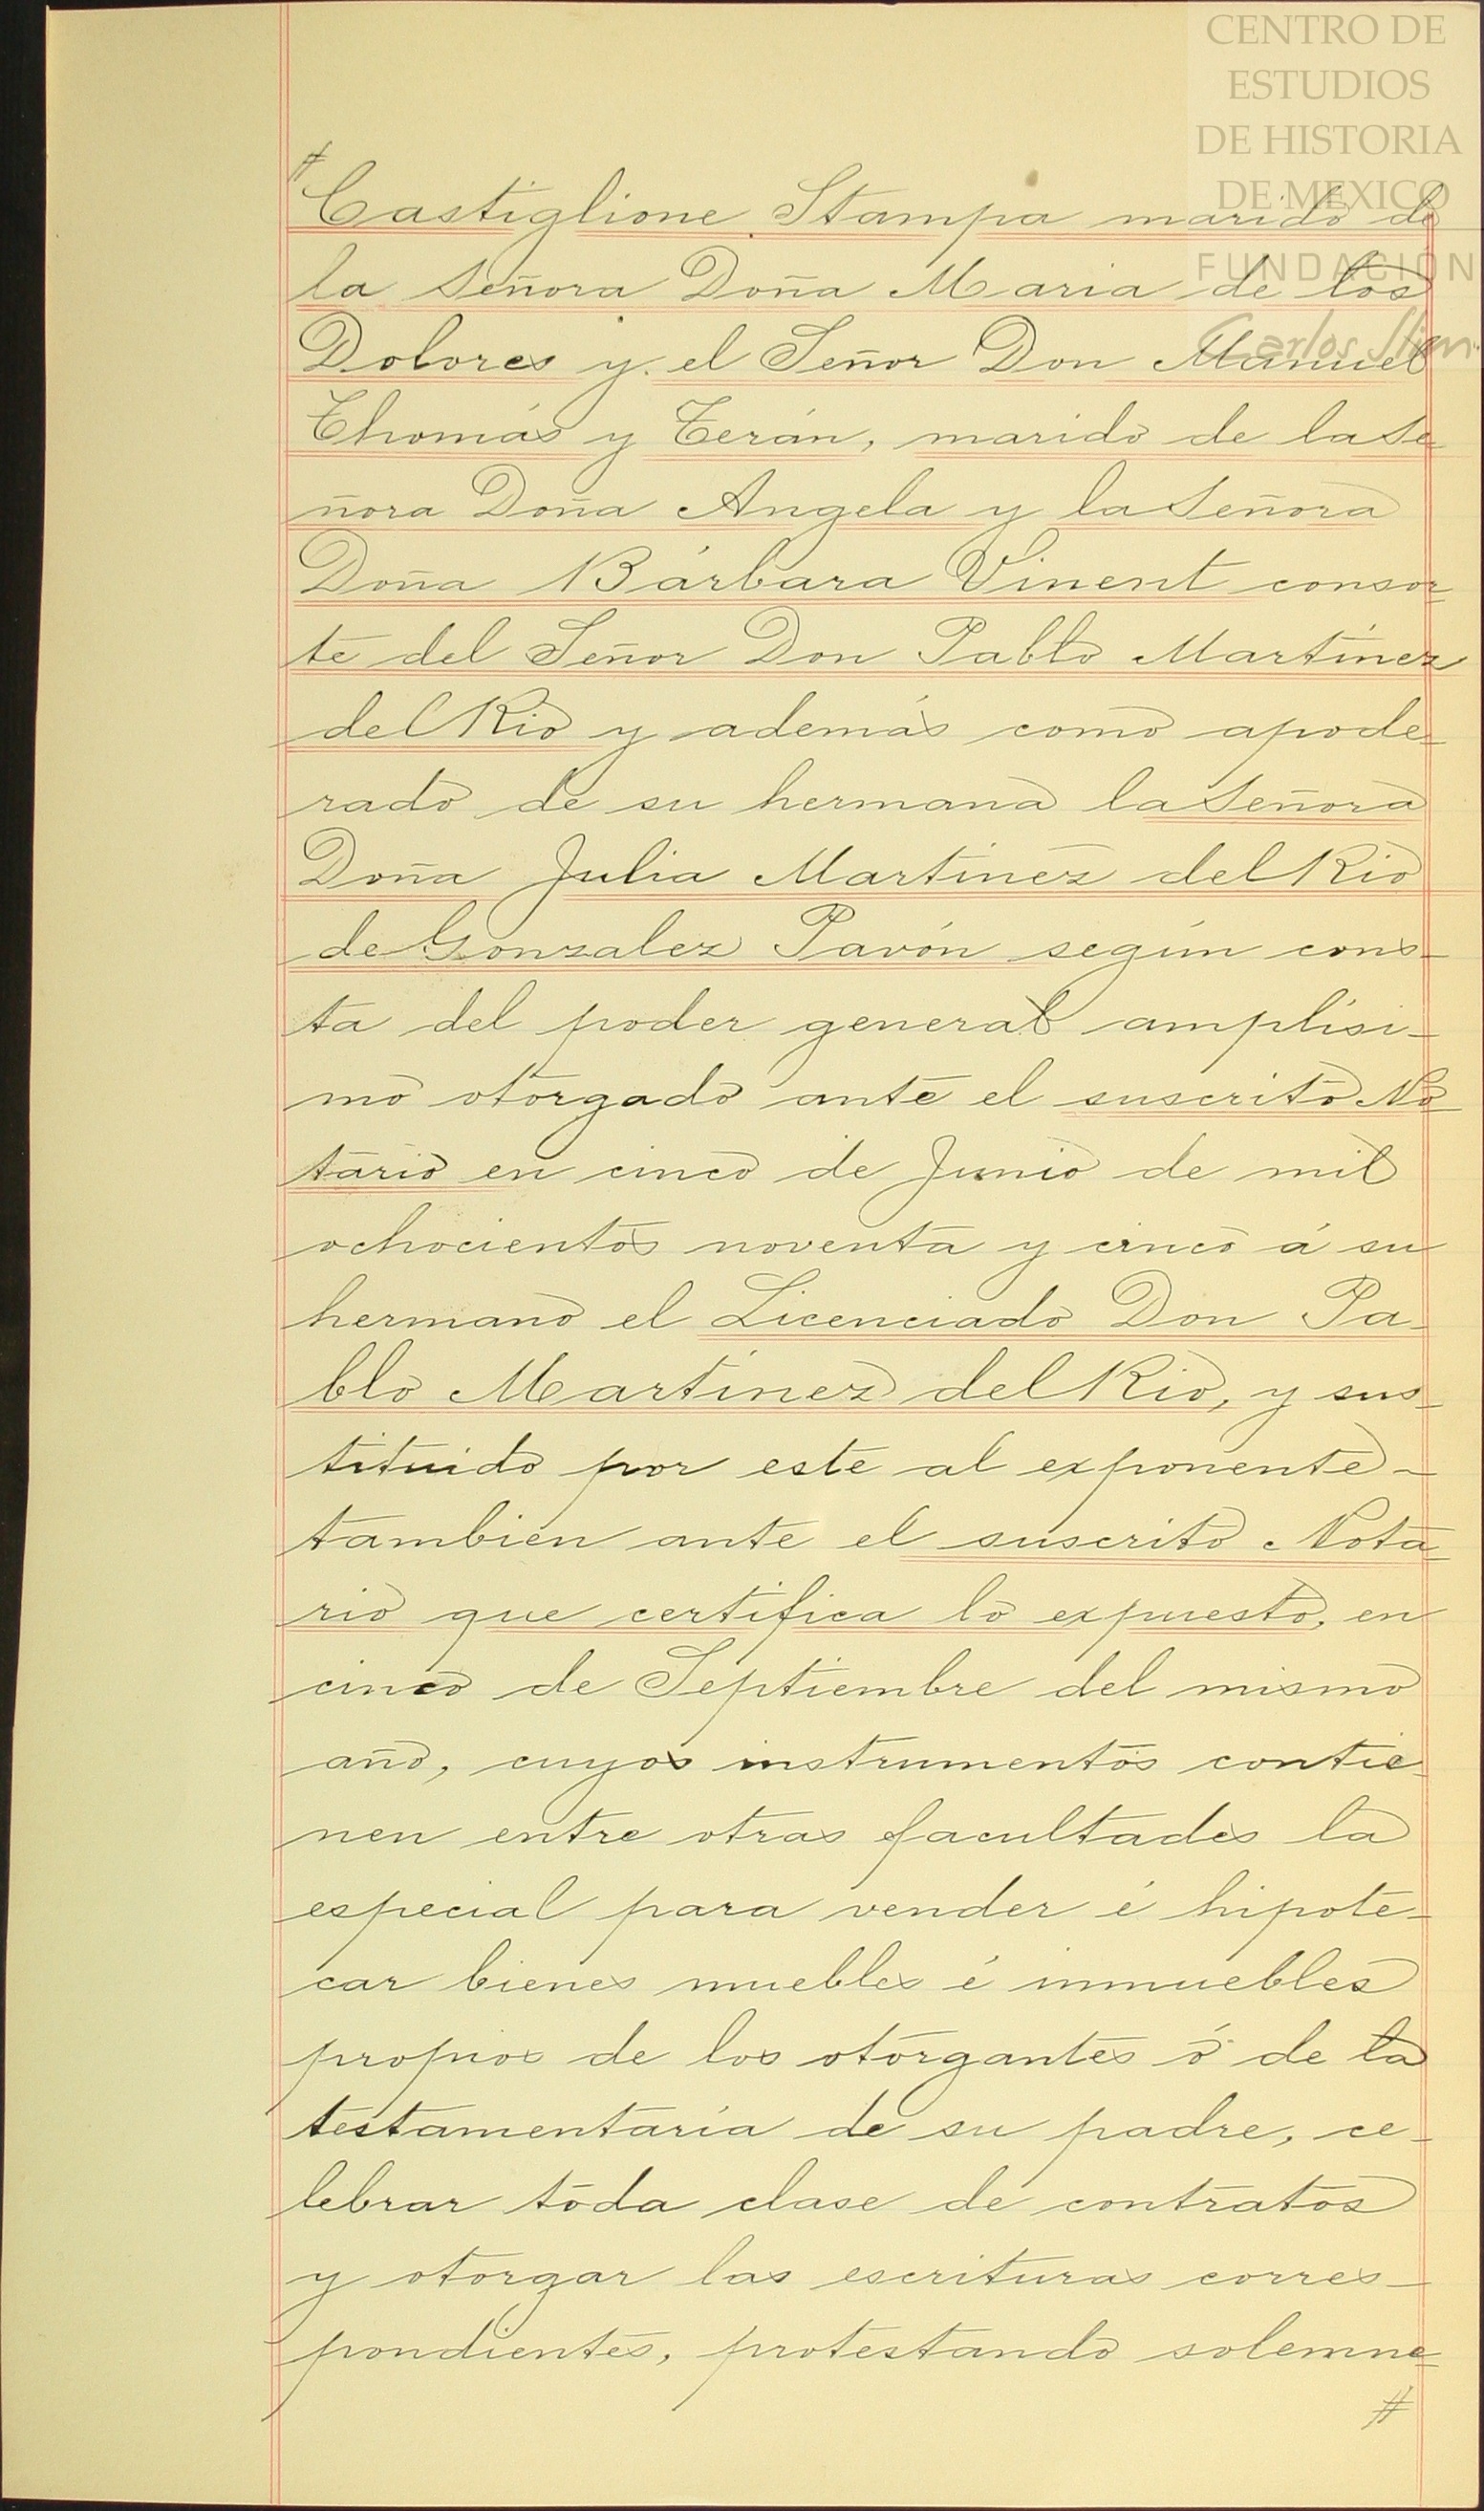 CENTRO DE
ESTUDIOS
DE HISTORIA
DE MEXICO
FUNDACIÓN
Carlos Slim
#
Castiglione Stampa marido de
la Señora Doña Maria de los
Dolores y el Señor Don Manuel
Thomás y Terán, marido de la Se
ñora Doña Angela y la Señora
Doña Bárbara Vinent consor-
te del Señor Don Pablo Martínez
del Rio y además como apode-
rado de su hermana la Señora
Doña Julia Martinez del Rio
de Gonzalez Pavón según cons-
ta del poder general amplísi-
mo otorgado ante el suscrito No
tario en cinco de Junio de mil
ochocientos noventa y cinco á su
hermano el Licenciado Don Pa-
blo Martínez del Rio, y sus-
tituido por este al exponente-
tambien ante el suscrito Nota-
rio que certifica lo expuesto, en
cinco de Septiembre del mismo
año, cuyos instrumentos contie-
nen entre otras facultades la
especial para vender é hipote-
car bienes muebles é inmuebles
propios de los otorgantes ó de la
testamentaría de su padre, ce-
lebrar toda clase de contratos
y otorgar las escrituras corres-
pondientes, protestando solemne-
#